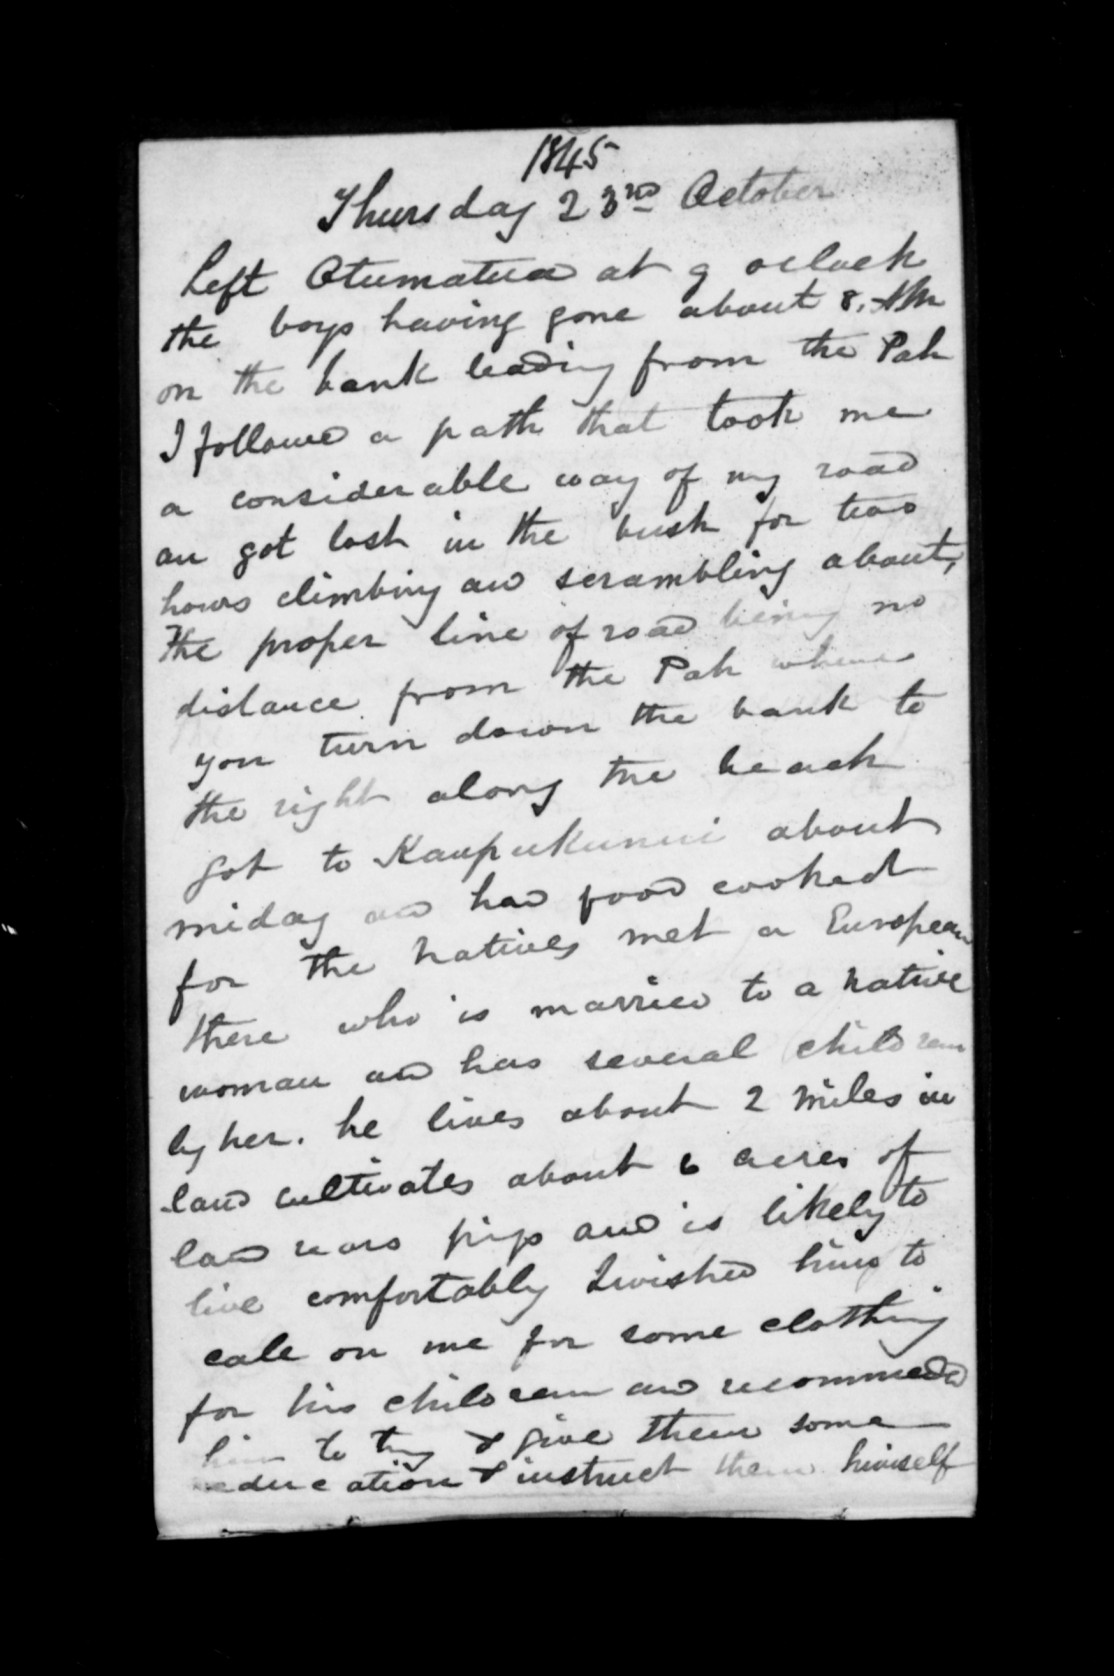 1845
Thursday 23rd October
Left Otumatua at 9 oclock
the boys having gone about 8. AM
on the bank leading from the Pah
I followed a path that took me
a considerable way of my road
an got lost in the bush for two
hours climbing and scrambling about,
the proper line of road being no
distance from the Pah where
you turn down the bank to
the right along the beach
got to Kaupukunui about
miday and had food cooked
for the natives met a European
there who is married to a native
woman and has several children
by her. he lives about 2 miles in
land cultivates about 6 acres of
land rears pigs and is likely to
live comfortably I wished him to
cale on me for some clothing
for his children and recommended
him to try & give them some
education & instruct them himself